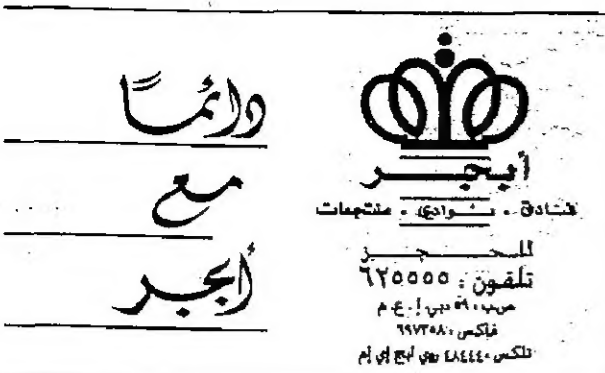 دائمًا
مع
أبجر
أبجر
فنادق - نوادي - منتجعات
للحجز
تلفون : ٦٢٥٥٥٥
ص.ب : ٥٩ دبي إ . ع . م
فاكس : ٦٩٧٣٥٨
تلكس : ٤٨٤٤٤ روي ايج إي إم